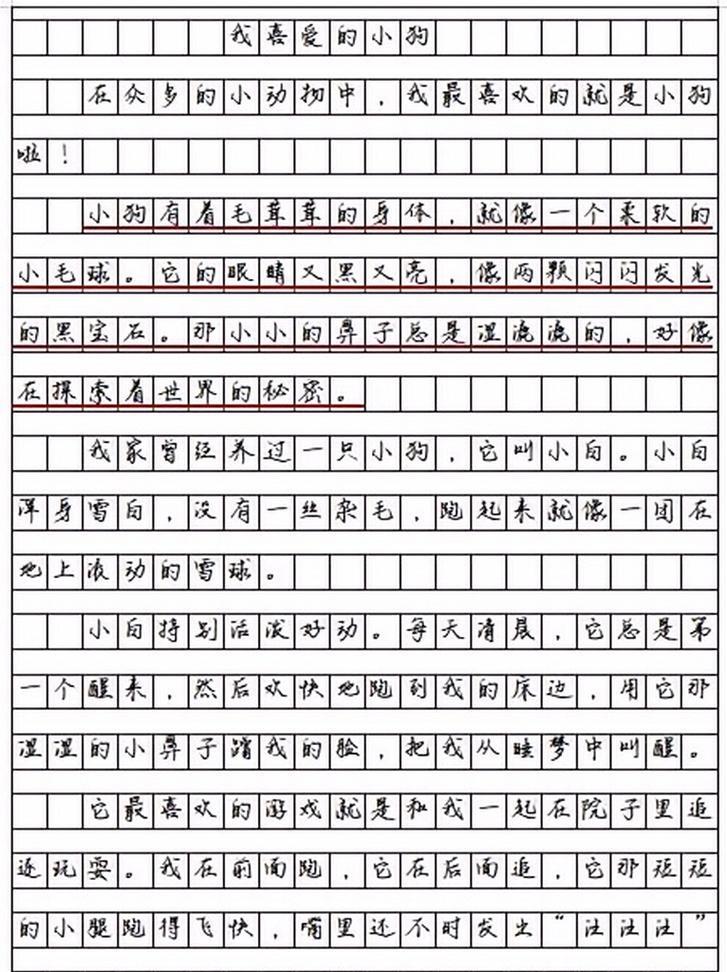 我喜爱的小狗
在众多的小动物中，我最喜欢的就是小狗
啦！
小狗有着毛茸茸的身体，就像一个柔软的
小毛球。它的眼睛又黑又亮，像两颗闪闪发光
的黑宝石。那小小的鼻子总是湿漉漉的，好像
在探索着世界的秘密。
我家曾经养过一只小狗，它叫小白。小白
浑身雪白，没有一丝杂毛，跑起来就像一团在
地上滚动的雪球。
小白特别活泼好动。每天清晨，它总是第
一个醒来，然后欢快地跑到我的床边，用它那
湿湿的小鼻子蹭我的脸，把我从睡梦中叫醒。
它最喜欢的游戏就是和我一起在院子里追
逐玩耍。我在前面跑，它在后面追，它那短短
的小腿跑得飞快，嘴里还不时发出“汪汪汪”